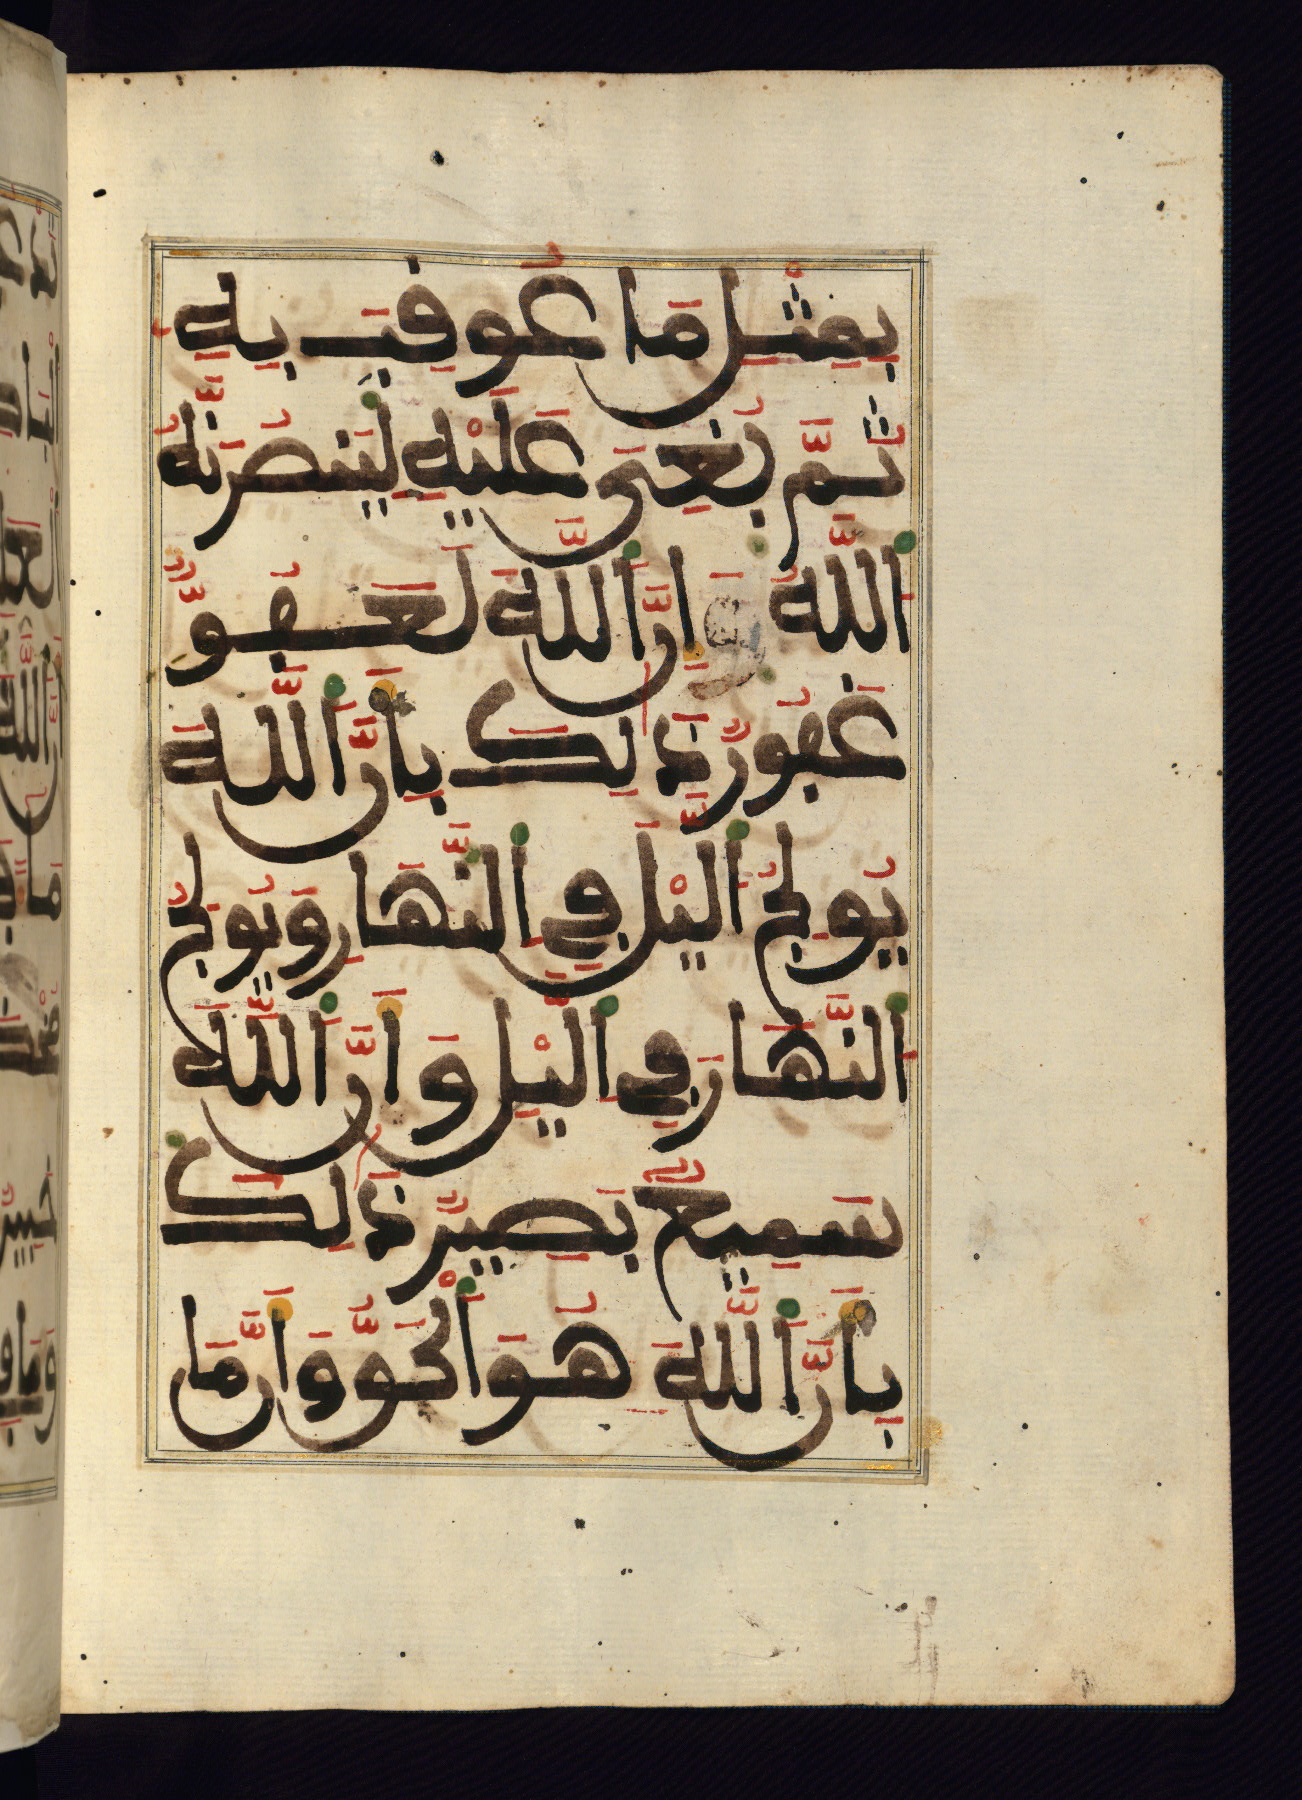 بِمِثْلِ مَا عُوقِبَ بِهِ
ثُمَّ بُغِيَ عَلَيْهِ لَيَنصُرَنَّهُ
اللَّهُ إِنَّ اللَّهَ لَعَفُوٌّ
غَفُورٌ ذَٰلِكَ بِأَنَّ اللَّهَ
يُولِجُ الَّيْلَ فِي النَّهَارِ وَيُولِجُ
النَّهَارَ فِي الَّيْلِ وَأَنَّ اللَّهَ
سَمِيعٌ بَصِيرٌ ذَٰلِكَ
بِأَنَّ اللَّهَ هُوَ الْحَقُّ وَأَنَّ مَا